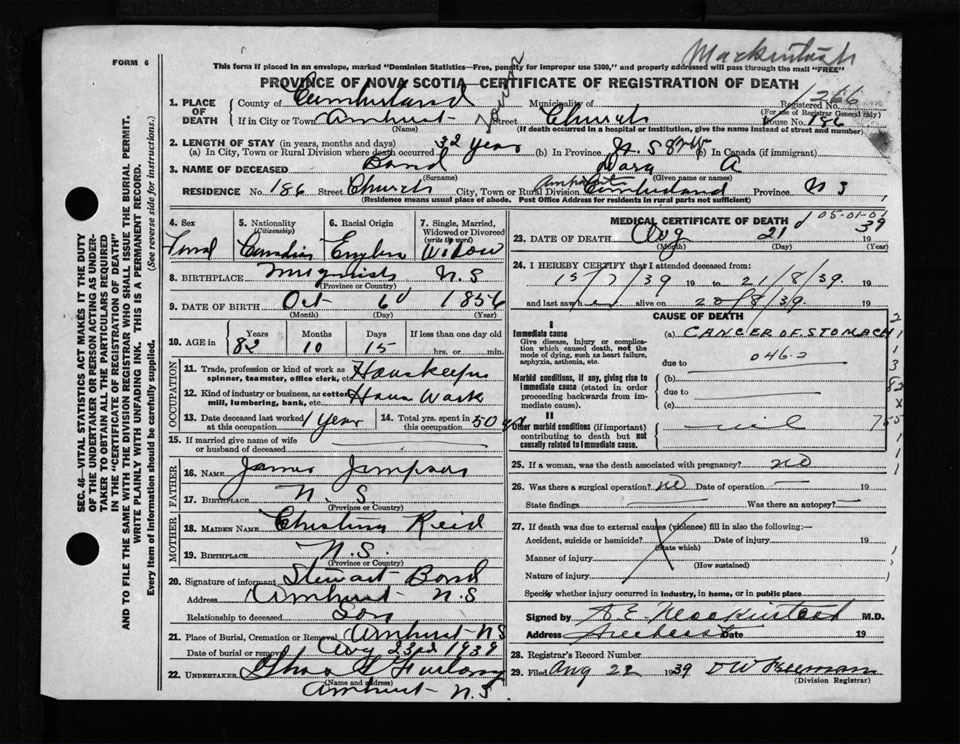 Mackintosh
FORM 6
This form if placed in an envelope, marked "Dominion Statistics—Free, penalty for improper use $300," and properly addressed will pass through the mail "FREE"
PROVINCE OF NOVA SCOTIA—CERTIFICATE OF REGISTRATION OF DEATH
1. PLACE OF DEATH
County of Cumberland Municipality of Registered No. 1266
(For use of Registrar General only)
If in City or Town Amherst Street Church House No. 186
(Name) (If death occurred in a hospital or institution, give the name instead of street and number)
2. LENGTH OF STAY (in years, months and days)
(a) In City, Town or Rural Division where death occurred 32 year (b) In Province N.S (c) In Canada (if immigrant)
3. NAME OF DECEASED Bond A
(Surname) (Given name or names)
RESIDENCE No. 186 Street Church City, Town or Rural Division Cumberland Province N S
(Residence means usual place of abode. Post Office Address for residents in rural parts not sufficient)
SEC. 46—VITAL STATISTICS ACT MAKES IT THE DUTY
OF THE UNDERTAKER OR PERSON ACTING AS UNDER-
TAKER TO OBTAIN ALL THE PARTICULARS REQUIRED
IN THE "CERTIFICATE OF REGISTRATION OF DEATH"
AND TO FILE THE SAME WITH THE DIVISION REGISTRAR WHO SHALL ISSUE THE BURIAL PERMIT.
WRITE PLAINLY WITH UNFADING INK. THIS IS A PERMANENT RECORD.
Every item of Information should be carefully supplied. (See reverse side for instructions.)
4. Sex
5. Nationality (Citizenship)
6. Racial Origin
7. Single, Married, Widowed or Divorced (write the word)
Widow
8. BIRTHPLACE N.S
(Province or Country)
9. DATE OF BIRTH Oct 6 1856
(Month) (Day) (Year)
10. AGE in
Years Months Days If less than one day old
82 10 15 hrs. or min.
OCCUPATION
11. Trade, profession or kind of work as spinner, teamster, office clerk, etc. Housekeeper
12. Kind of industry or business, as cotton mill, lumbering, bank, etc. House Work
13. Date deceased last worked at this occupation 1 year
14. Total yrs. spent in this occupation 50
15. If married give name of wife or husband of deceased
FATHER
16. NAME James
17. BIRTHPLACE N. S.
(Province or Country)
MOTHER
18. MAIDEN NAME Christina Reid
19. BIRTHPLACE N.S.
(Province or Country)
20. Signature of informant Stewart Bond
Address Amherst N.S
Relationship to deceased Son
21. Place of Burial, Cremation or Removal Amherst NS
Date of burial or removal Aug 23rd 1939
22. UNDERTAKER Furlong
(Name and address)
Amherst N.S
MEDICAL CERTIFICATE OF DEATH
05-01-01
23. DATE OF DEATH Aug 21 19 39
(Month) (Day) (Year)
24. I HEREBY CERTIFY that I attended deceased from:
15/7/39 19 to 21/8/39. 19
and last saw her alive on 20/8/39. 19
CAUSE OF DEATH
I
Immediate cause
Give disease, injury or complication which caused death, not the mode of dying, such as heart failure, asphyxia, asthenia, etc.
(a) CANCER OF STOMACH
due to 046.2
Morbid conditions, if any, giving rise to immediate cause (stated in order proceeding backwards from immediate cause).
(b)
due to
(c)
II
Other morbid conditions (important) contributing to death but not causally related to immediate cause.
nil
25. If a woman, was the death associated with pregnancy? no
26. Was there a surgical operation? no Date of operation 19
State findings Was there an autopsy?
27. If death was due to external causes (violence) fill in also the following:—
Accident, suicide or homicide? Date of injury 19
(State which)
Manner of injury
(How sustained)
Nature of injury
Specify whether injury occurred in industry, in home, or in public place
Signed by A E Mackintosh M.D.
Address Amherst Date 19
28. Registrar's Record Number
29. Filed Aug 22 1939
(Division Registrar)